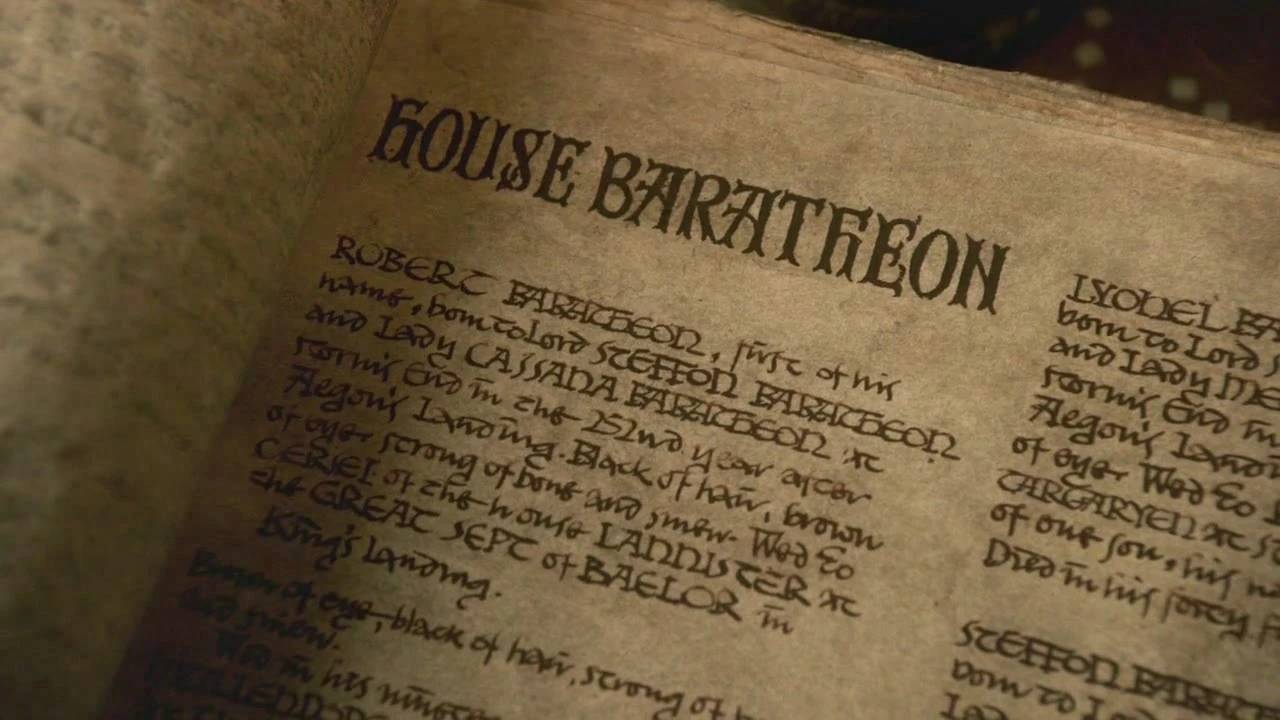 HOUSE BARATHEON
ROBERT BARATHEON, first of his
name, born to Lord STEFFON BARATHEON
and Lady CASSANA BARATHEON at
Storm's End in the 252nd year after
Aegon's Landing. Black of hair, brown
of eye, strong of bone and sinew. Wed to
CERSEI of the house LANNISTER at
the GREAT SEPT of BAELOR in
King's Landing.
Brown of eye, black of hair, strong of
and sinew.
Wed in his
LYONEL BA
born to Lord S
and Lady ME
Storm's End in
Aegon's Landin
of eye. Wed to
TARGARYEN at
of one son, his
Died in his forty
STEFFON BARAT
born to